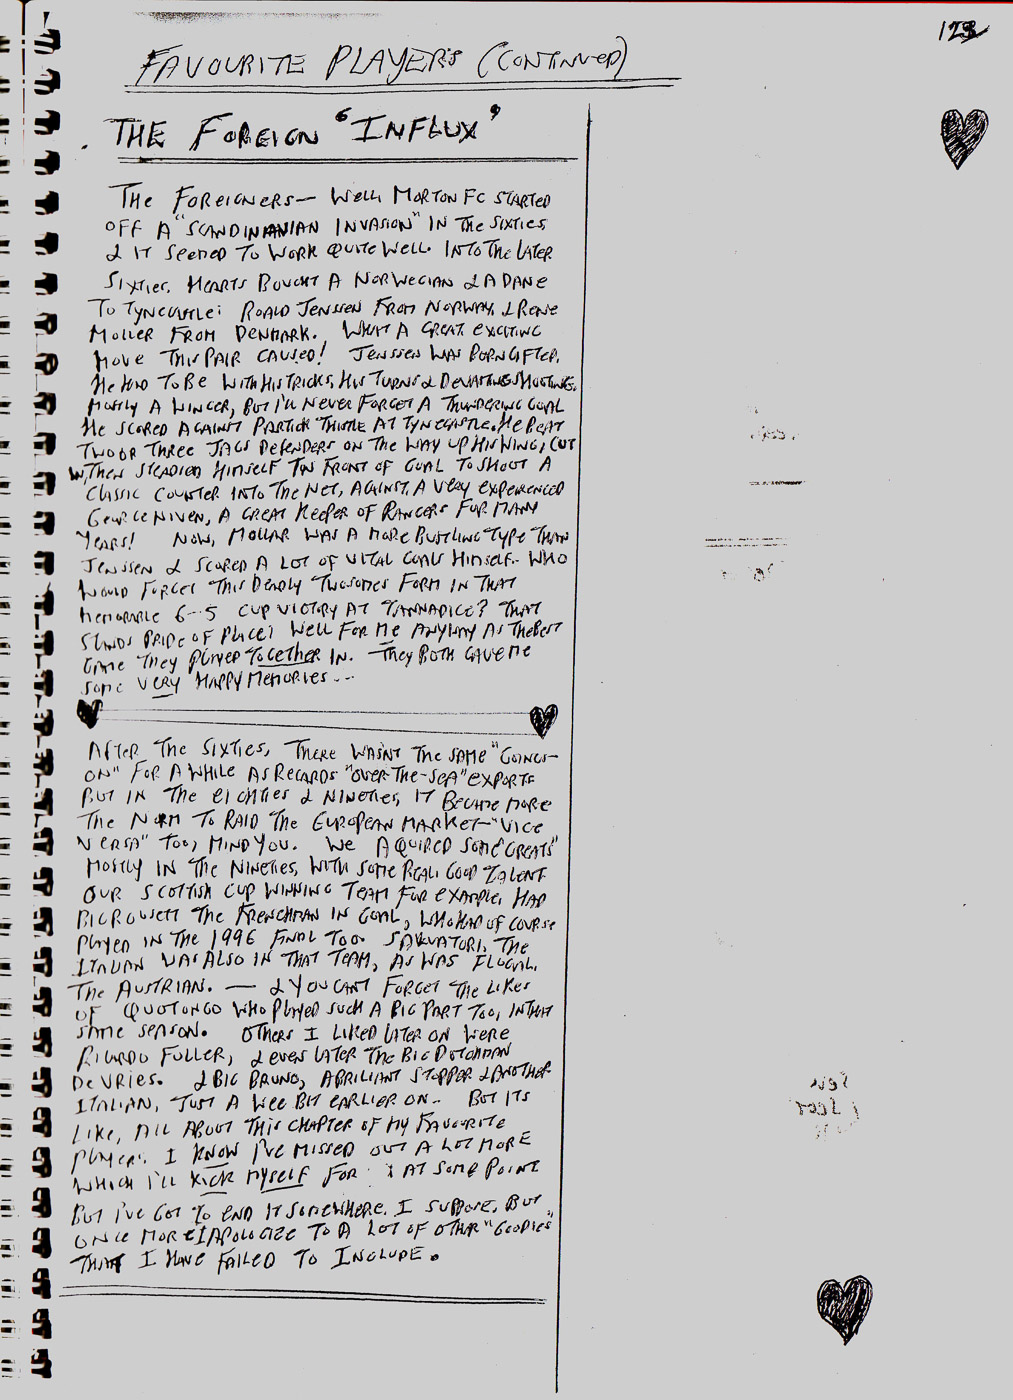 123
FAVOURITE PLAYERS (CONTINUED)
THE FOREIGN "INFLUX"
THE FOREIGNERS— WELL MORTON FC STARTED
OFF A "SCANDINAVIAN INVASION" IN THE SIXTIES
& IT SEEMED TO WORK QUITE WELL. INTO THE LATER
SIXTIES, HEARTS BOUGHT A NORWEGIAN & A DANE
TO TYNECASTLE: ROALD JENSSEN FROM NORWAY, & RENE
MOLLER FROM DENMARK. WHAT A GREAT, EXCITING
MOVE THIS PAIR CAUSED! JENSSEN WAS BORN GIFTED,
HE HAD TO BE WITH HIS TRICKS, HIS TURNS & DEVASTATING SHOOTING.
MOSTLY A WINGER, BUT I'LL NEVER FORGET A THUNDERING GOAL
HE SCORED AGAINST PARTICK THISTLE AT TYNECASTLE. HE BEAT
TWO OR THREE JAGS DEFENDERS ON THE WAY UP HIS WING, CUT
IN, THEN STEADIED HIMSELF IN FRONT OF GOAL TO SHOOT A
CLASSIC COUNTER INTO THE NET, AGAINST A VERY EXPERIENCED
GEORGE NIVEN, A GREAT KEEPER OF RANGERS FOR MANY
YEARS! NOW, MOLLAR WAS A MORE BUSTLING TYPE THAN
JENSSEN & SCORED A LOT OF VITAL GOALS HIMSELF. WHO
WOULD FORGET THIS DEADLY TWOSOMES FORM IN THAT
MEMORABLE 6-5 CUP VICTORY AT TANNADICE? THAT
STANDS PRIDE OF PLACE, WELL FOR ME ANYWAY AS THE BEST
GAME THEY PLAYED TOGETHER IN. THEY BOTH GAVE ME
SOME VERY HAPPY MEMORIES...
AFTER THE SIXTIES, THERE WASN'T THE SAME "GOINGS-
ON" FOR A WHILE AS RECARDS "OVER-THE-SEA" EXPORTS
BUT IN THE EIGHTIES & NINETIES, IT BECAME MORE
THE NORM TO RAID THE EUROPEAN MARKET—"VICE
VERSA" TOO, MIND YOU. WE AQUIRED SOME "GREATS"
MOSTLY IN THE NINETIES, WITH SOME REAL GOOD TALENT
OUR SCOTTISH CUP WINNING TEAM FOR EXAMPLE, HAD
BIG ROUSETT THE FRENCHMAN IN GOAL, WHO HAD OF COURSE
PLAYED IN THE 1996 FINAL TOO. SALVATORI, THE
ITALIAN WAS ALSO IN THAT TEAM, AS WAS FLOGAL,
THE AUSTRIAN. — & YOU CANT FORGET THE LIKES
OF QUOTONGO WHO PLAYED SUCH A BIG PART TOO, IN THAT
SAME SEASON. OTHERS I LIKED LATER ON WERE
RICARDO FULLER, & EVEN LATER THE BIG DUTCHMAN
DE VRIES. & BIG BRUNO, A BRILIANT STOPPER & ANOTHER
ITALIAN, JUST A WEE BIT EARLIER ON. BUT ITS
LIKE, ALL ABOUT THIS CHAPTER OF MY FAVOURITE
PLAYERS. I KNOW I'VE MISSED OUT A LOT MORE
WHICH I'LL KICK MYSELF FOR AT SOME POINT
BUT I'VE GOT TO END IT SOMEWHERE, I SUPPOSE, BUT
ONCE MORE I APOLOGIZE TO A LOT OF OTHER "GOODIES"
THAT I HAVE FAILED TO INCLUDE.